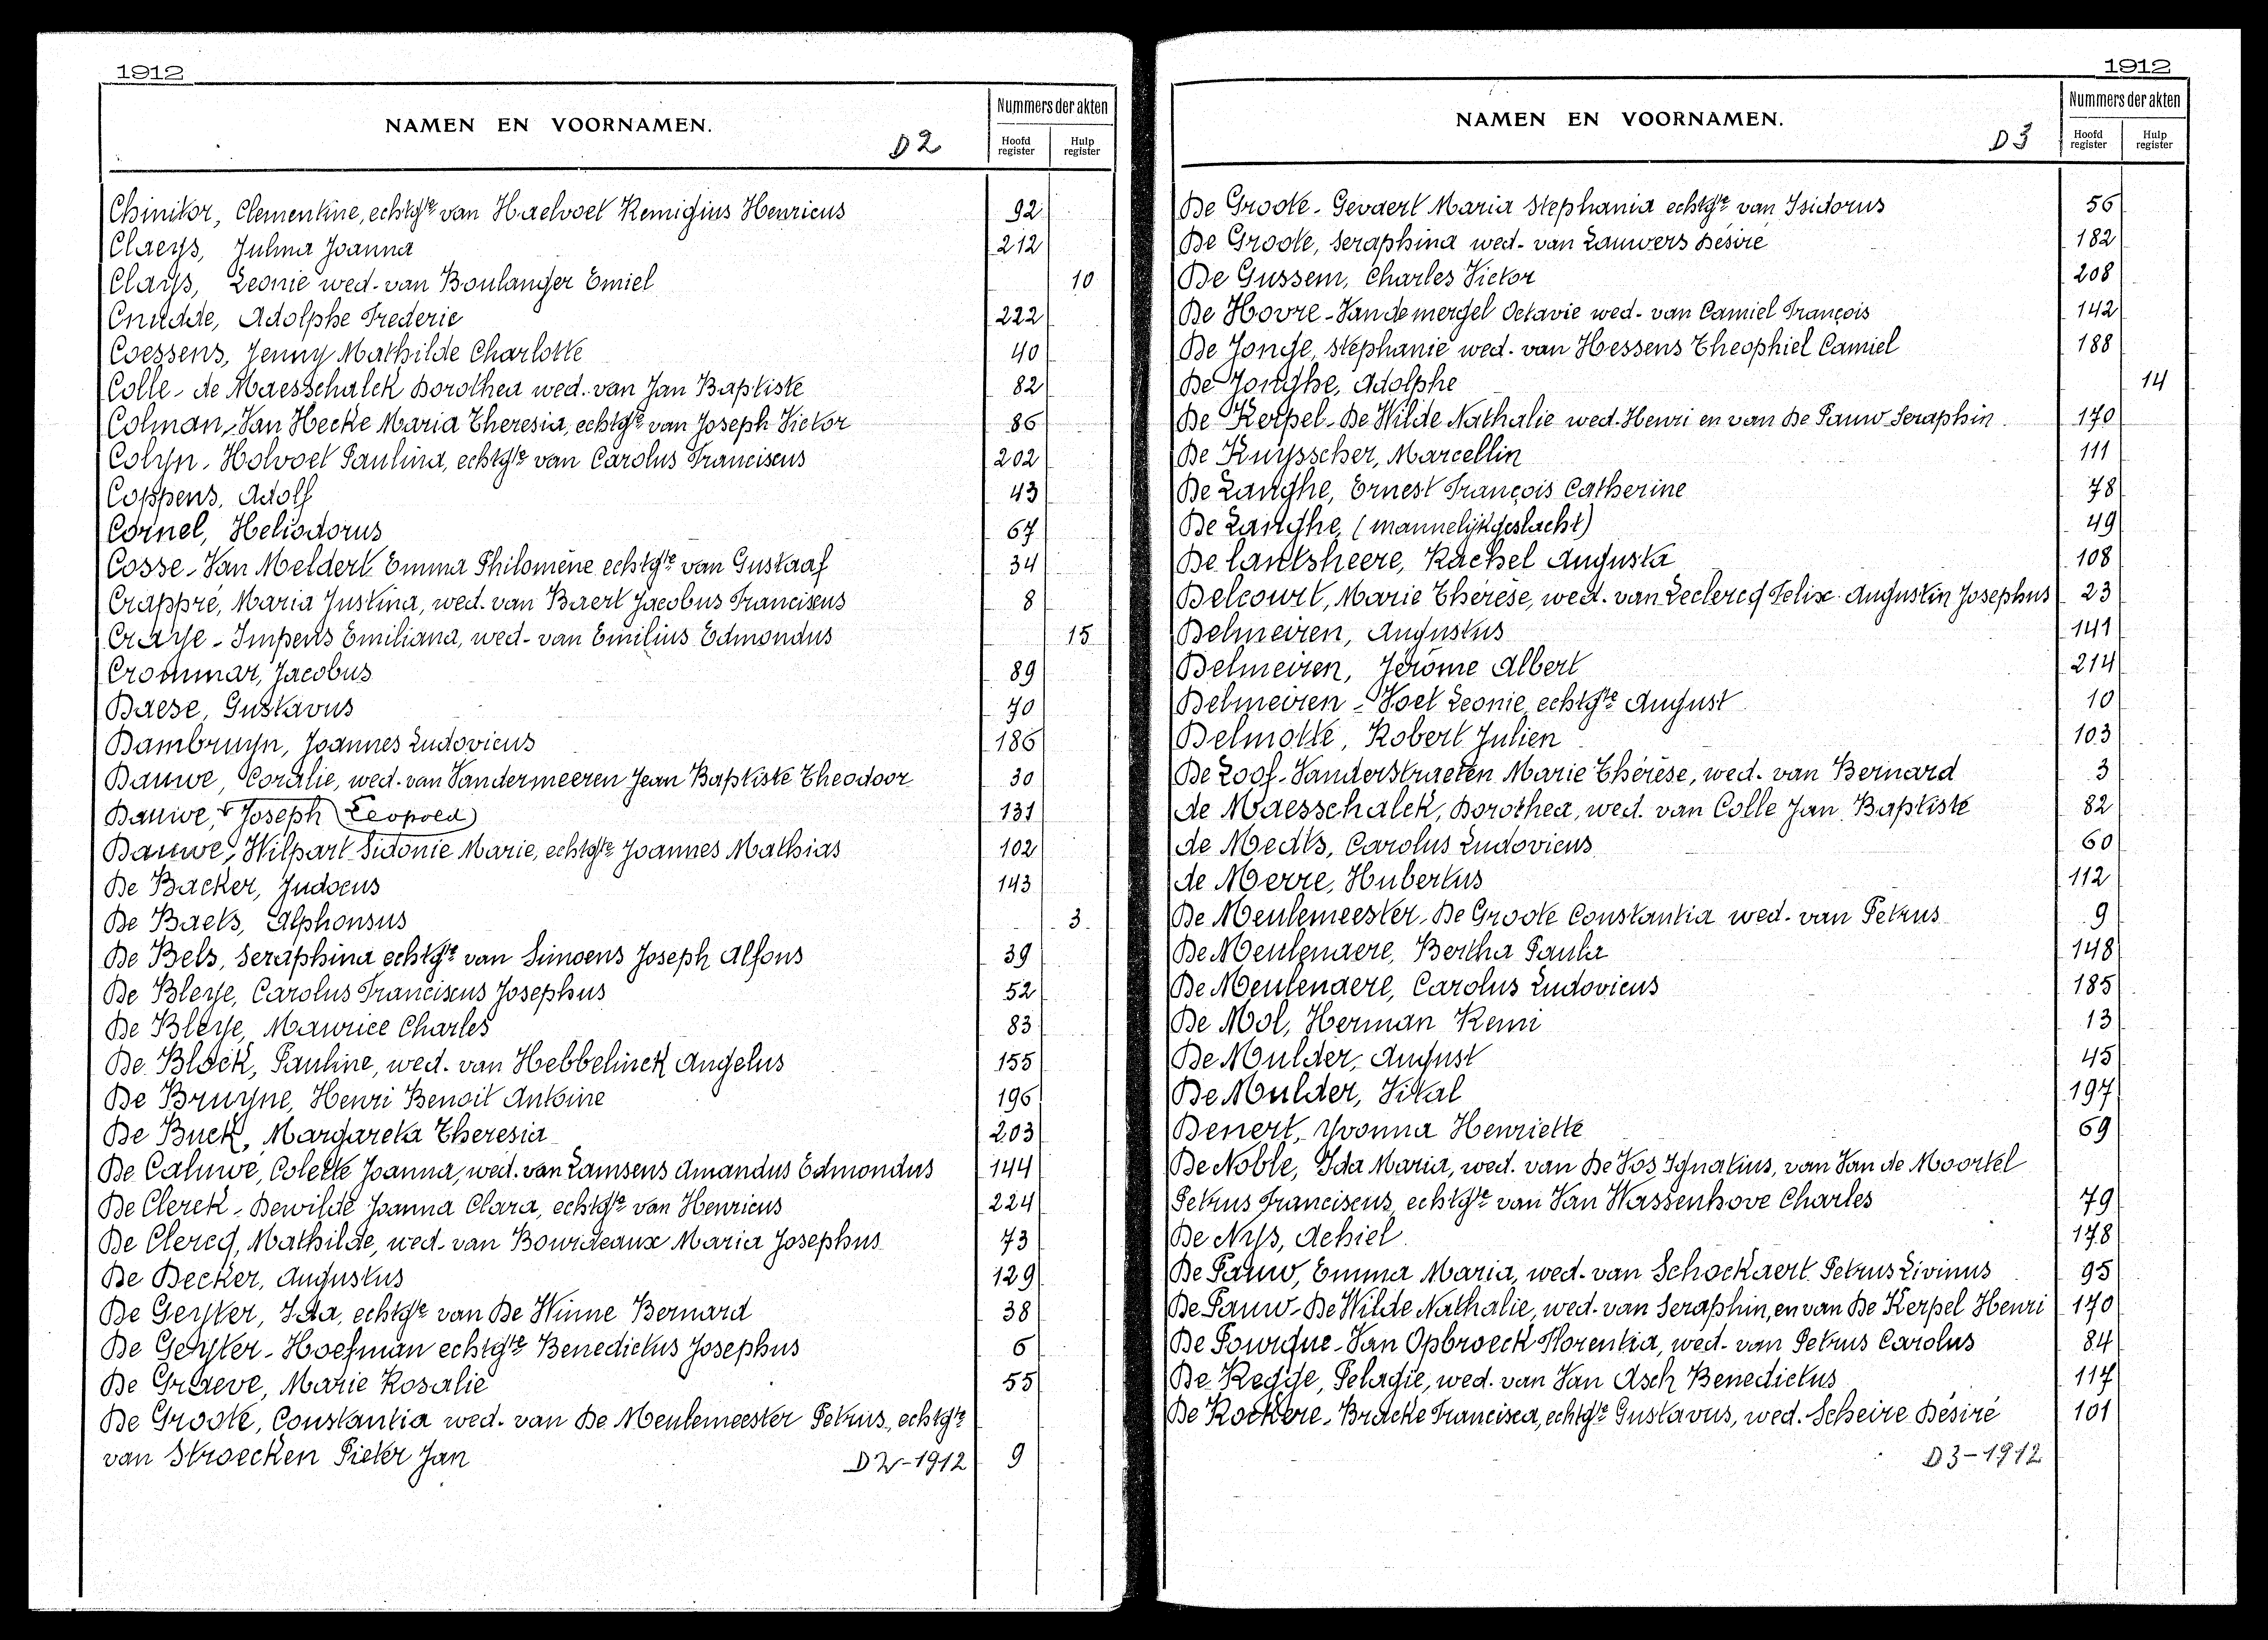 1912
NAMEN EN VOORNAMEN.
D2
Nummers der akten
Hoofd register
Hulp register
Chinitor, Clementine, echtgte van Haelvoet Remigius Henricus 92
Claeys, Julma Joanna 212
Clays, Leonie wed. van Boulanger Emiel 10
Cnudde, Adolphe Frederic 222
Coessens, Jenny Mathilde Charlotte 40
Colle - de Maesschalck Dorothea wed. van Jan Baptiste 82
Colman - Van Hecke Maria Theresia, echtgte van Joseph Victor 86
Colyn - Holvoet Paulina, echtgte van Carolus Franciscus 202
Coppens, Adolf 43
Cornel, Heliodorus 67
Cosse - Van Meldert Emma Philomène echtgte van Gustaaf 34
Crappré, Maria Justina, wed. van Baert Jacobus Franciscus 8
Craye - Impens Emiliana, wed. van Emilius Edmondus 15
Crommar, Jacobus 89
Daese, Gustavus 70
Dambruyn, Joannes Ludovicus 186
Dauwe, Coralie, wed. van Vandermeeren Jean Baptiste Theodoor 30
Dauwe, Joseph (Leopold) 131
Dauwe, Hilpart Sidonie Marie, echtgte Joannes Mathias 102
De Backer, Judocus 143
De Baets, Alphonsus 3
De Bels, Seraphina echtgte van Simoens Joseph Alfons 39
De Bleye, Carolus Franciscus Josephus 52
De Bleye, Maurice Charles 83
De Block, Pauline, wed. van Hebbelinck Angelus 155
De Bruyne, Henri Benoit Antoine 196
De Buck, Margareta Theresia 203
De Caluwé, Colette Joanna, wed. van Lamsens Amandus Edmondus 144
De Clerck - Dewilde Joanna Clara, echtgte van Henricus 224
De Clercq, Mathilde, wed. van Bourdeaux Maria Josephus 73
De Decker, Augustus 129
De Geyter, Ida, echtgte van De Winne Bernard 38
De Geyter - Hoefman echtgte Benedictus Josephus 6
De Graeve, Marie Rosalie 55
De Groote, Constantia wed. van De Meulemeester Petrus, echtgte
van Stroecken Pieter Jan 9
D2-1912
1912
NAMEN EN VOORNAMEN.
D3
Nummers der akten
Hoofd register
Hulp register
De Groote - Gevaert Maria Stephania echtgte van Isidorus 56
De Groote, Seraphina wed. van Lauwers Désiré 182
De Gussem, Charles Victor 208
De Hovre - Vandemergel Octavie wed. van Camiel François 142
De Jonge, Stephanie wed. van Hessens Theophiel Camiel 188
De Jonghe, Adolphe 14
De Kerpel - De Wilde Nathalie wed. Henri en van De Pauw Seraphin 170
De Kuysscher, Marcellin 111
De Langhe, Ernest François Catherine 78
De Langhe, (mannelijk geslacht) 49
De lantsheere, Rachel Augusta 108
Delcourt, Marie Thérèse, wed. van Leclercq Felix Augustin Josephus 23
Delmeiren, Augustus 141
Delmeiren, Jérôme Albert 214
Delmeiren - Voet Leonie echtgte August 10
Delmotte, Robert Julien 103
De Loof - Vanderstraeten Marie Thérèse, wed. van Bernard 3
de Maesschalck, Dorothea, wed. van Colle Jan Baptiste 82
de Medts, Carolus Ludovicus 60
de Merre, Hubertus 112
De Meulemeester - De Groote Constantia wed. van Petrus 9
De Meulenaere, Bertha Paula 148
De Meulenaere, Carolus Ludovicus 185
De Mol, Herman Remi 13
De Mulder, August 45
De Mulder, Vital 197
Denert, Yvonna Henriette 69
De Noble, Ida Maria, wed. van De Vos Ignatius, van Van de Moortel
Petrus Franciscus, echtgte van Van Wassenhove Charles 79
De Nys, Achiel 178
De Pauw, Emma Maria, wed. van Schockaert Petrus Livinus 95
De Pauw - De Wilde Nathalie, wed. van Seraphin, en van De Kerpel Henri 170
De Pourque - Van Opbroeck Florentia, wed. van Petrus Carolus 84
De Regge, Pelagie, wed. van Van Asch Benedictus 117
De Rockere - Bracke Francisca, echtgte Gustavus, wed. Scheire Désiré 101
D3-1912